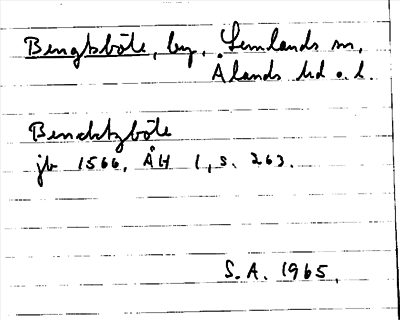 Bengtsböte, by, Lemlands sn,
Ålands hd o. l.
Bencktzböte
jb 1566, ÅH 1, s. 263.
S.A. 1965.